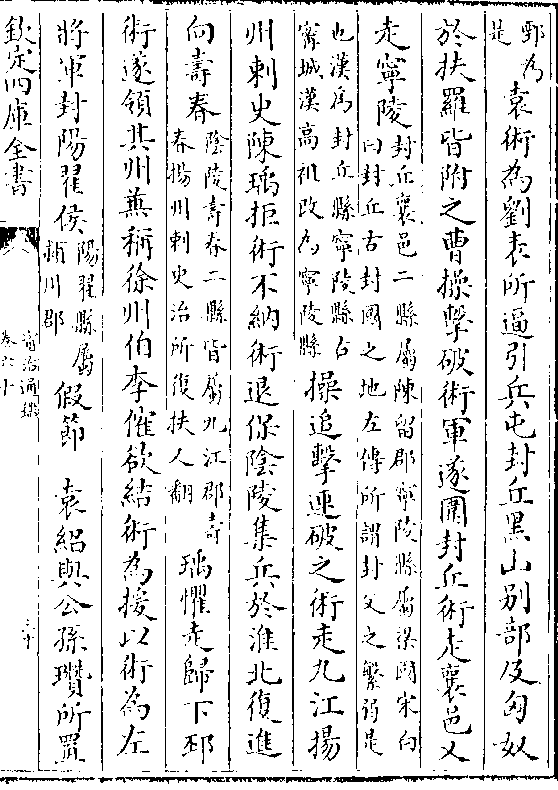 鄄為
是
袁術為劉表所逼引兵屯封丘黑山别部及匈奴
於扶羅皆附之曹操擊破術軍遂圍封丘術走襄邑又
走寧陵
封丘襄邑二縣屬陳留郡寧陵縣屬梁國宋白
曰封丘古封國之地左傳所謂封父之繁弱是
也漢為封丘縣寧陵縣古
寗城漢高祖改為寧陵縣
操追擊連破之術走九江揚
州刺史陳瑀拒術不納術退保陰陵集兵於淮北復進
向壽春
陰陵壽春二縣皆屬九江郡壽
春揚州刺史治所復扶人翻
瑀懼走歸下邳
術遂領其州兼稱徐州伯李傕欲結術為援以術為左
將軍封陽翟侯
陽翟縣屬
頴川郡
假節　袁紹與公孫瓚所置
欽定四庫全書
資治通鑑
卷六十
三十